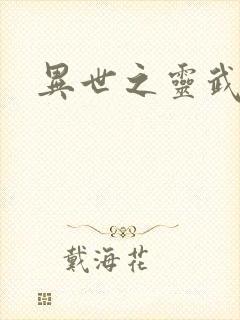 異世之靈武
戴海花